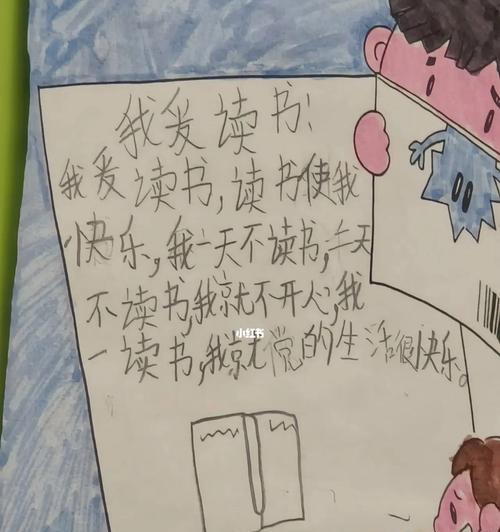 我爱读书!
我爱读书,读书使我
快乐,我一天不读书,二天
不读书,我就不开心,我
一读书,我就党的生活很快乐。
小红书